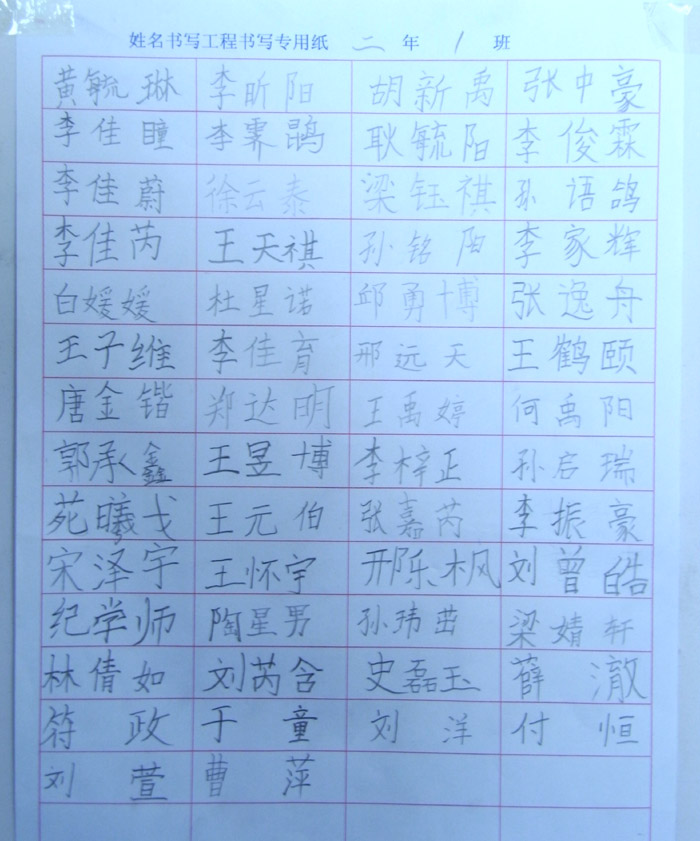 姓名书写工程书写专用纸 二 年 1 班
黄毓琳 李昕阳 胡新禹 张中豪
李佳瞳 李霁鹃 耿毓阳 李俊霖
李佳蔚 徐云泰 梁钰祺 孙语鸽
李佳芮 王天祺 孙铭阳 李家辉
白媛媛 杜星诺 邱勇博 张逸舟
王子维 李佳育 邢远天 王鹤颐
唐金锴 郑达明 王禹婷 何禹阳
郭承鑫 王昱博 李梓正 孙启瑞
苑曦戈 王元伯 张嘉芮 李振豪
宋泽宇 王怀宇 邢陈枫 刘曾皓
纪学师 陶星男 孙玮茁 梁婧轩
林倩如 刘芮含 史磊玉 薛澈
符政 于童 刘洋 付恒
刘萱 曹萍